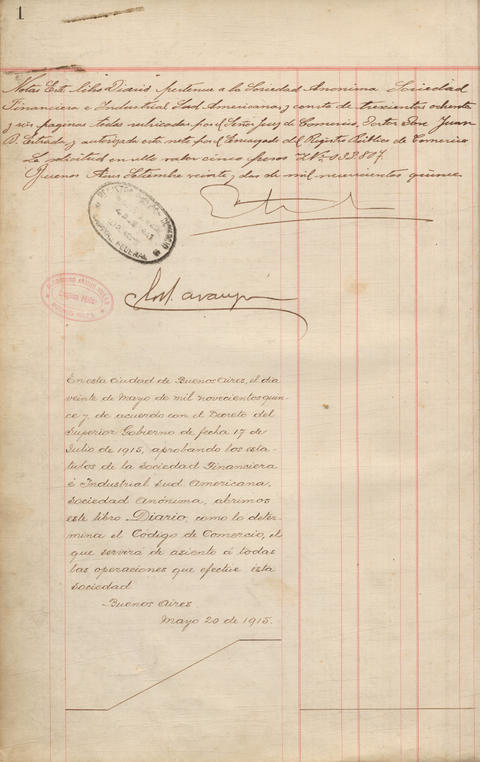 1
Nota: Este libro Diario pertenece a la Sociedad Anonima Sociedad
Financiera e Industrial Sud Americana, y consta de trescientos ochenta
y seis paginas todas rubricadas por el Señor Juez de Comercio, Doctor Don Juan
A. Estrada, y autorizada esta nota por el Encargado del Registro Público de Comercio
La solicitud en sello valor cinco pesos Nº 033807.
Buenos Aires Setiembre veinte y dos de mil novecientos quince
CAPITAL FEDERAL
En esta ciudad de Buenos Aires, el dia
veinte de Mayo de mil novecientos quin-
ce y de acuerdo con el Decreto del
Superior Gobierno de fecha 17 de
Julio de 1915, aprobando los esta-
tutos de la Sociedad Financiera
é Industrial Sud Americana,
Sociedad Anónima, abrimos
este libro Diario, como lo deter-
mina el Código de Comercio, el
que servirá de asiento á todas
las operaciones que efectúe esta
Sociedad
Buenos Aires
Mayo 20 de 1915.